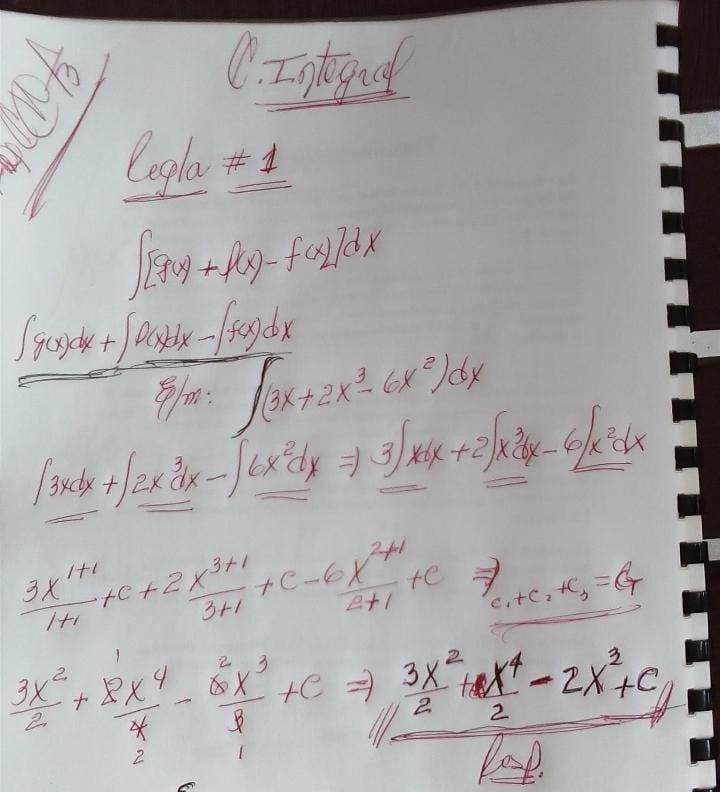 C. Integral
Regla # 1
∫[g(x) + f(x) - f(x)]dx
∫g(x)dx + ∫f(x)dx - ∫f(x)dx
E/m: ∫(3x + 2x³ - 6x²)dx
∫3xdx + ∫2x³dx - ∫6x²dx ⇒ 3∫xdx + 2∫x³dx - 6∫x²dx
3x^(1+1)/(1+1) + c + 2x^(3+1)/(3+1) + c - 6x^(2+1)/(2+1) + c ⇒ c₁+c₂+c₃ =
3x²/2 + 2x⁴/4 - 6x³/3 + c ⇒ 3x²/2 + x⁴/2 - 2x³ + c
Resp.